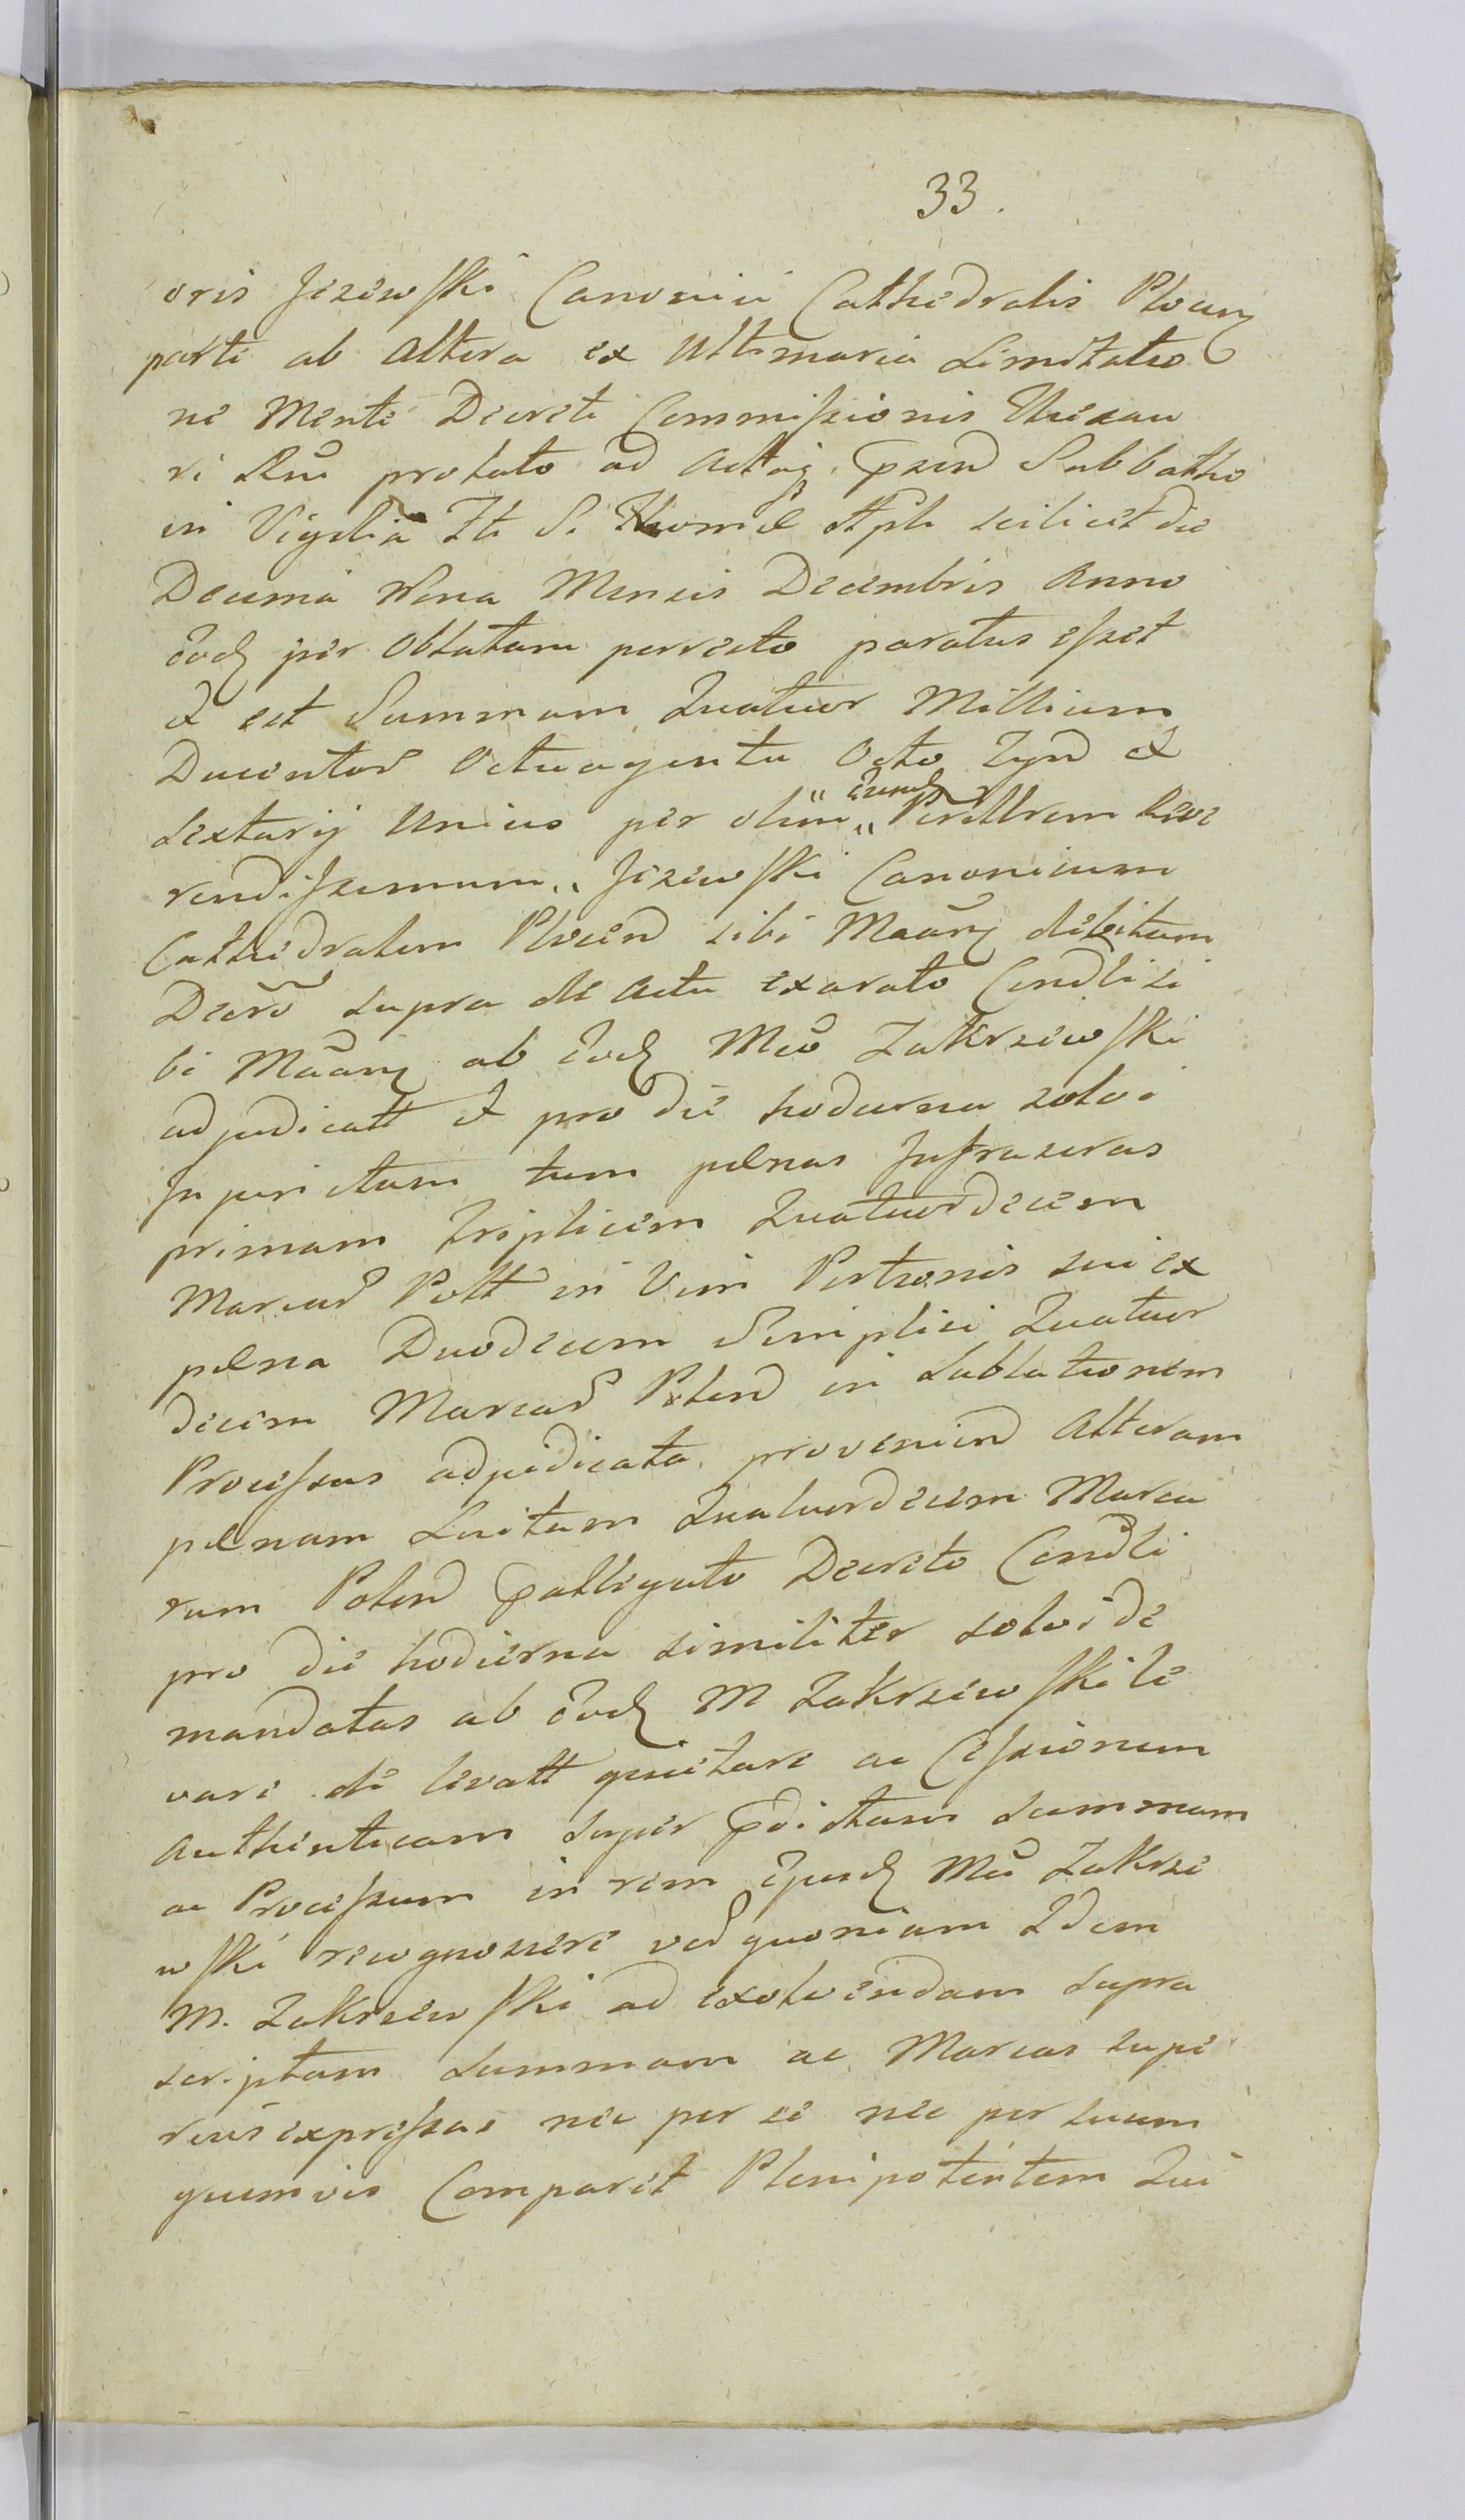 33.
oris Jezewski Canonici Cathedralis Plocen
parti ab altera ex Ultimaria Limitatio
ne Mente Decreti Commissionis Thesau
ri Rni prolato ad Actaq psend Sabbatho
in Vigilia Fti S. Thomæ Apli scilicet die
Decima Nona Mensis Decembris Anno
eod per Oblatam porrecto paratus esset
et est Summam Quatuor Millium
Ducentor Octuaginta Octo Tynf et
Sextarij Unius per olim „ eund
Perillrem Reve
rendissimum „ Jezewski Canonicum
Cathedralem Plocen sibi Maary debitum
Decro supra de actu exarato Condli si
bi Maary ab eod Mco Zakrzewski
adjudicatt et pro die hodierna solvi
Injunctam tum pœnas Infrascras
primam triplicem Quatuordecem
Marcar Poll in Vim Portionis sui ex
pœna Duodecem Simplici Quatuor
decem Marcar Polon in Sublationem
Processus adjudicata provenien alteram
pœnam Luitam Quatuordecem Marca
rum Polon Palligato Decreto Condli
pro die hodierna similiter solvi de
mandatas ab eod M Zakrzewski le
vare de levatt quietare ac Cessionem
Authenticam super pdictam Summam
ac Processum in rem ejusd Mci Zakrze
wski recognoscere ver quoniam Idem
M. Zakrzewski ad exolvendam supra
scriptam Summam ac Marcas supe
rius expressas nec per se nec per suum
quemvis Comparet Plenipotentem Qui